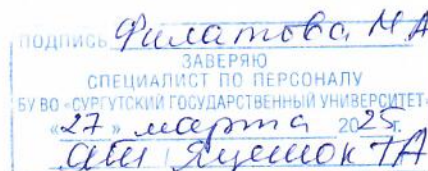 ПОДПИСЬ Филатова М А
ЗАВЕРЯЮ
СПЕЦИАЛИСТ ПО ПЕРСОНАЛУ
БУ ВО «СУРГУТСКИЙ ГОСУДАРСТВЕННЫЙ УНИВЕРСИТЕТ»
«27» марта 2025г.